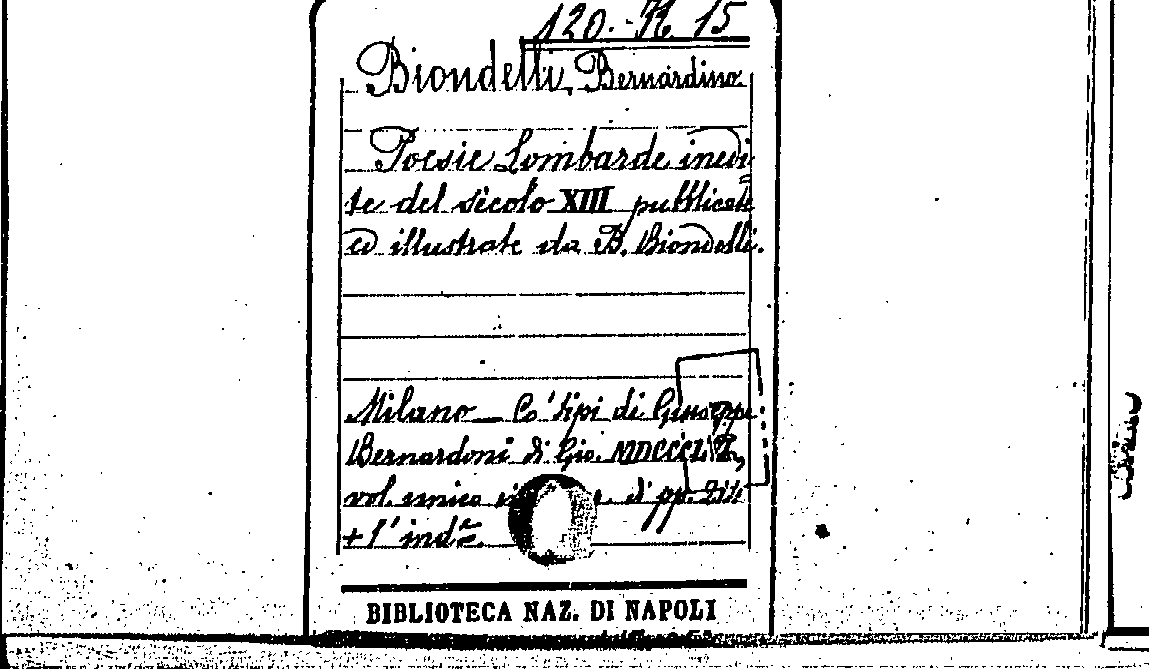 120.- H 15
Biondelli, Bernardino
Poesie Lombarde inedi
te del secolo XIII pubblicate
ed illustrate da B. Biondelli.
Milano – Co' tipi di Giuseppe
Bernardoni di Gio.
vol. unico di pp.
+ l' ind.ce
BIBLIOTECA NAZ. DI NAPOLI